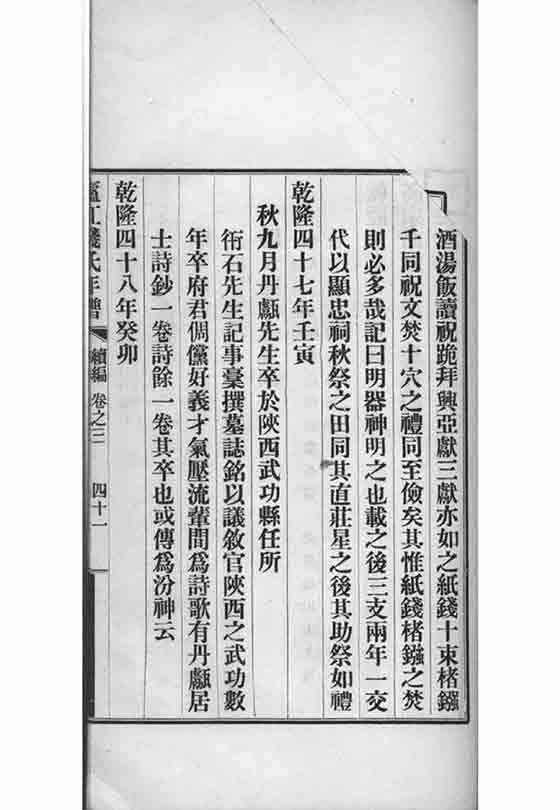 酒湯飯讀祝跪拜興亞獻三獻亦如之紙錢十束楮鏹
千同祝文焚十穴之禮同至儉矣其惟紙錢楮鏹之焚
則必多哉記曰明器神明之也載之後三支兩年一交
代以顯忠祠秋祭之田同其直莊星之後其助祭如禮
乾隆四十七年壬寅
秋九月丹甗先生卒於陝西武功縣任所
衎石先生記事稾撰墓誌銘以議敘官陝西之武功數
年卒府君倜儻好義才氣壓流輩間爲詩歌有丹甗居
士詩鈔一卷詩餘一卷其卒也或傳爲汾神云
乾隆四十八年癸卯
廬江錢氏年譜 續編 卷之三 四十一